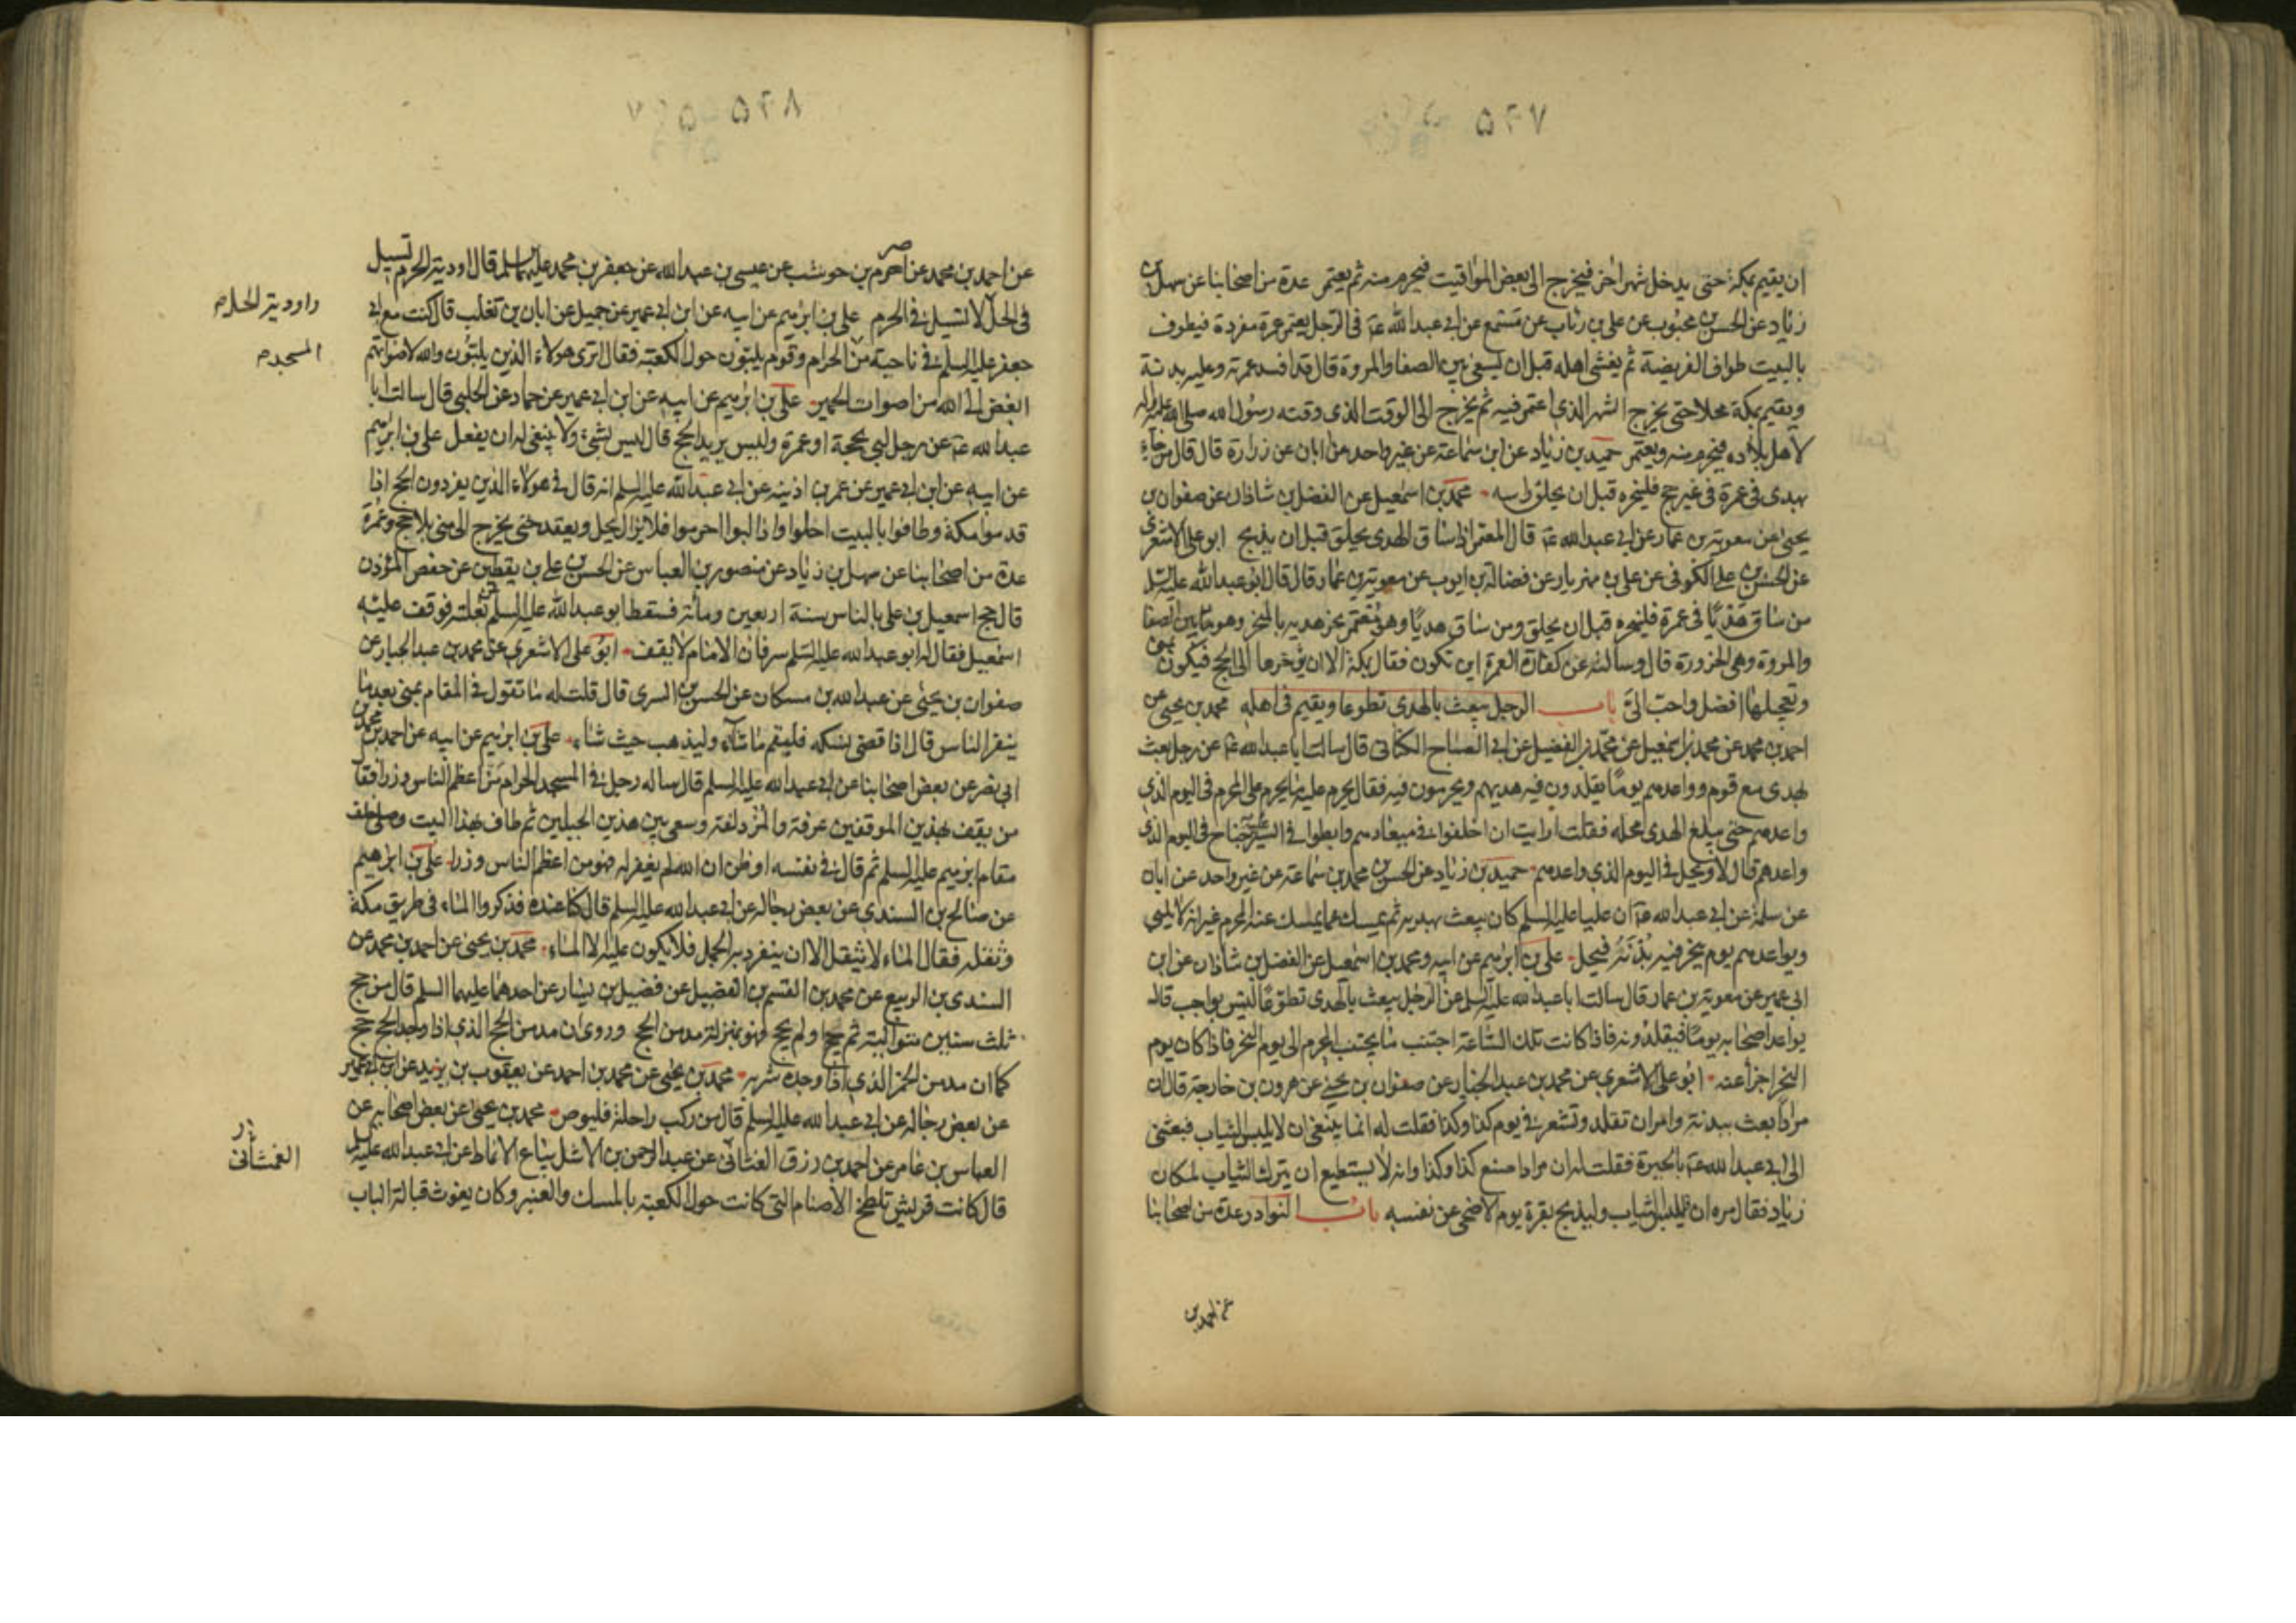 ۵۴۷
ان يقيم بمكة حتى يدخل شهر اخر فيخرج الى بعض المواقيت فيحرم منه ثم يعتمر عدة من اصحابنا عن سهل بن
زياد عن الحسن بن محبوب عن على بن رئاب عن مسمع عن ابى عبدالله ع فى الرجل يعتمر عمرة مفردة فيطوف
بالبيت طواف الفريضة ثم يغشى اهله قبل ان يسعى بين الصفا والمروة قال قد افسد عمرته وعليه بدنة
ويقيم بمكة محلا حتى يخرج الشهر الذى اعتمر فيه ثم يخرج الى الوقت الذى وقته رسول الله صلى الله عليه واله
لاهل بلاده فيحرم منه ويعتمر حميد بن زياد عن ابن سماعة عن غير واحد عن ابان عن زرارة قال قال من جاء
بهدى فى عمرة فى غير حج فلينحره قبل ان يحلق راسه محمد بن اسمعيل عن الفضل بن شاذان عن صفوان بن
يحيى عن معوية بن عمار عن ابى عبدالله ع قال المعتمر اذا ساق الهدى يحلق قبل ان يذبح ابو على الاشعرى
عن الحسن بن على الكوفى عن على بن مهزيار عن فضالة بن ايوب عن معوية بن عمار قال قال ابو عبدالله عليه السلم
من ساق هديًا فى عمرة فلينحره قبل ان يحلق ومن ساق هديًا وهو يعتمر نحر هديه بالمنحر وهو ما بين الصفا
والمروة وهى الحزورة قال وسالته عن كفارة العمرة اين تكون فقال بمكة الا ان يؤخرها الى الحج فيكون بمنى
وتعجيلها افضل واحب الىّ باب الرجل يبعث بالهدى تطوعا ويقيم فى اهله محمد بن يحيى عن
احمد بن محمد عن محمد بن اسمعيل عن محمد بن الفضيل عن ابى الصباح الكنانى قال سالت ابا عبدالله ع عن رجل بعث
بهدى مع قوم وواعدهم يومًا يقلدون فيه هديهم ويحرمون فيه فقال يحرم عليه ما يحرم على المحرم فى اليوم الذى
واعدهم حتى يبلغ الهدى محله فقلت ارايت ان اخلفوا فى ميعادهم وابطوا فى السير عليه جناح فى اليوم الذى
واعدهم قال لا ويحل فى اليوم الذى واعدهم حميد بن زياد عن الحسن بن محمد بن سماعة عن غير واحد عن ابان
عن سلمة عن ابى عبدالله ع ان عليا عليه السلم كان يبعث بهديه ثم يمسك عما يمسك عنه المحرم غير انه لا يلبى
ويواعدهم يوم ينحر فيه بُدْنَه فيحل على بن ابراهيم عن ابيه ومحمد بن اسمعيل عن الفضل بن شاذان عن ابن
ابى عمير عن معوية بن عمار قال سالت ابا عبدالله عليه السلم عن الرجل يبعث بالهدى تطوعًا ليس بواجب قال
يواعد اصحابه يومًا فيقلدونه فاذا كانت تلك الساعة اجتنب ما يجتنب المحرم الى يوم النحر فاذا كان يوم
النحر اجزأ عنه ابو على الاشعرى عن محمد بن عبد الجبار عن صفوان بن يحيى عن هرون بن خارجة قال ان
مرادًا بعث ببدنة وامر ان تقلد وتشعر فى يوم كذا وكذا فقلت له انما ينبغى ان لا يلبس الثياب فبعثنى
الى ابى عبدالله ع بالحيرة فقلت له ان مرادا صنع كذا وكذا وانه لا يستطيع ان يترك الثياب لمكان
زياد فقال مره ان فليلبس الثياب وليذبح بقرة يوم الاضحى عن نفسه باب النوادر عدة من اصحابنا
عن احمد بن
۵۴۸
عن احمد بن محمد عن اصرم بن حوشب عن عيسى بن عبدالله عن جعفر بن محمد عليهما السلم قال اودية الحرم تسيل
فى الحل لا تسيل فى الحرم على بن ابراهيم عن ابيه عن ابن ابى عمير عن جميل عن ابان بن تغلب قال كنت مع ابى
واودية الحل م
جعفر عليه السلم فى ناحية من الحرام وقوم يلبون حول الكعبة فقال اترى هولاء الذين يلبون والله لاصواتهم
المسجد م
ابغض الى الله من اصوات الحمير على بن ابراهيم عن ابيه عن ابن ابى عمير عن حماد عن الحلبى قال سالت ابا
عبدالله ع عن رجل لبى بحجة او عمرة وليس يريد الحج قال ليس بشىء ولا ينبغى له ان يفعل على بن ابراهيم
عن ابيه عن ابن ابى عمير عن عمر بن اذينه عن ابى عبدالله عليه السلم انه قال فى هولاء الذين يفردون الحج اذا
قدموا مكة وطافوا بالبيت احلوا واذا لبوا احرموا فلا يزال يحل ويعقد حتى يخرج الى منى بلا حج وعمرة
عدة من اصحابنا عن سهل بن زياد عن منصور بن العباس عن الحسن بن على بن يقطين عن حفص المؤذن
قال حج اسمعيل بن على بالناس سنة اربعين ومائة فسقط ابو عبدالله عليه السلم عن بغلته فوقف عليه
اسمعيل فقال له ابو عبدالله عليه السلم سر فان الامام لا يقف ابو على الاشعرى عن محمد بن عبد الجبار عن
صفوان بن يحيى عن عبدالله بن مسكان عن الحسن بن السرى قال قلت له ما تقول فى المقام بمنى بعد ما
ينفر الناس قال اذا قضى نسكه فليقم ما شاء وليذهب حيث شاء على بن ابراهيم عن ابيه عن احمد بن محمد بن
ابى نصر عن بعض اصحابنا عن ابى عبدالله عليه السلم قال ساله رجل فى المسجد الحرام من اعظم الناس وزرا فقال
من يقف بهذين الموقفين عرفة والمزدلفة وسعى بين هذين الجبلين ثم طاف بهذا البيت وصلى خلف
مقام ابراهيم عليه السلم ثم قال فى نفسه او ظن ان الله لم يغفر له فهو من اعظم الناس وزرا على بن ابراهيم
عن صالح بن السندى عن بعض رجاله عن ابى عبدالله عليه السلم قال كنا عنده فذكروا الماء فى طريق مكة
وثقله فقال الماء لا يثقل الا ان ينفرد به الجمل فلا يكون عليه الا الماء محمد بن يحيى عن احمد بن محمد عن
السندى بن الربيع عن محمد بن القسم بن الفضيل عن فضيل بن يسار عن احدهما عليهما السلم قال من حج
ثلث سنين متوالية ثم حج او لم يحج فهو بمنزلة مدمن الحج وروى ان مدمن الحج الذى اذا وجد الحج حج
كما ان مدمن الخمر الذى اذا وجده شربه محمد بن يحيى عن محمد بن احمد عن يعقوب بن يزيد عن ابن ابى عمير
عن بعض رجاله عن ابى عبدالله عليه السلم قال من ركب راحلة فليوص محمد بن يحيى عن بعض اصحابه عن
العباس بن عامر عن احمد بن رزق الغشانى عن عبد الرحمن بن الاشل بياع الانماط عن ابى عبدالله عليه السلم
الغمشانى
قال كانت قريش تلطخ الاصنام التى كانت حول الكعبة بالمسك والعنبر وكان يغوث قبالة الباب